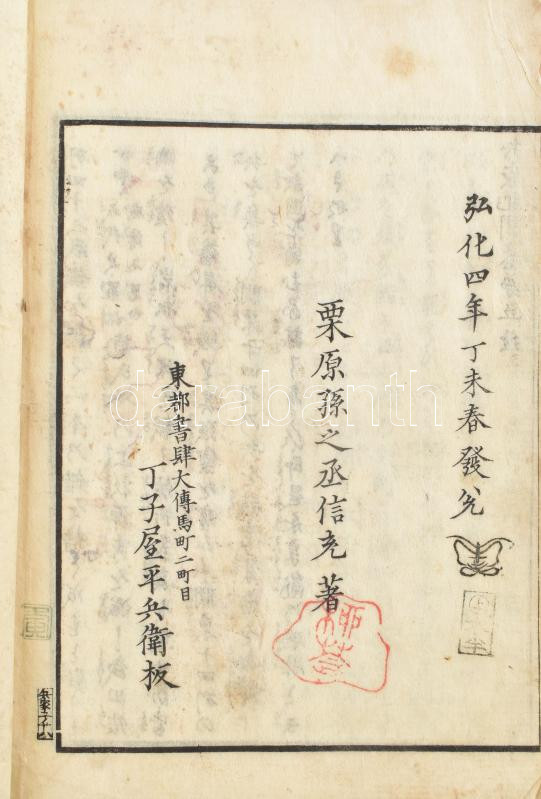 弘化四年丁未春發兌
栗原孫之丞信充 著
東都書肆大傳馬町二町目
丁子屋平兵衛板
darabanth